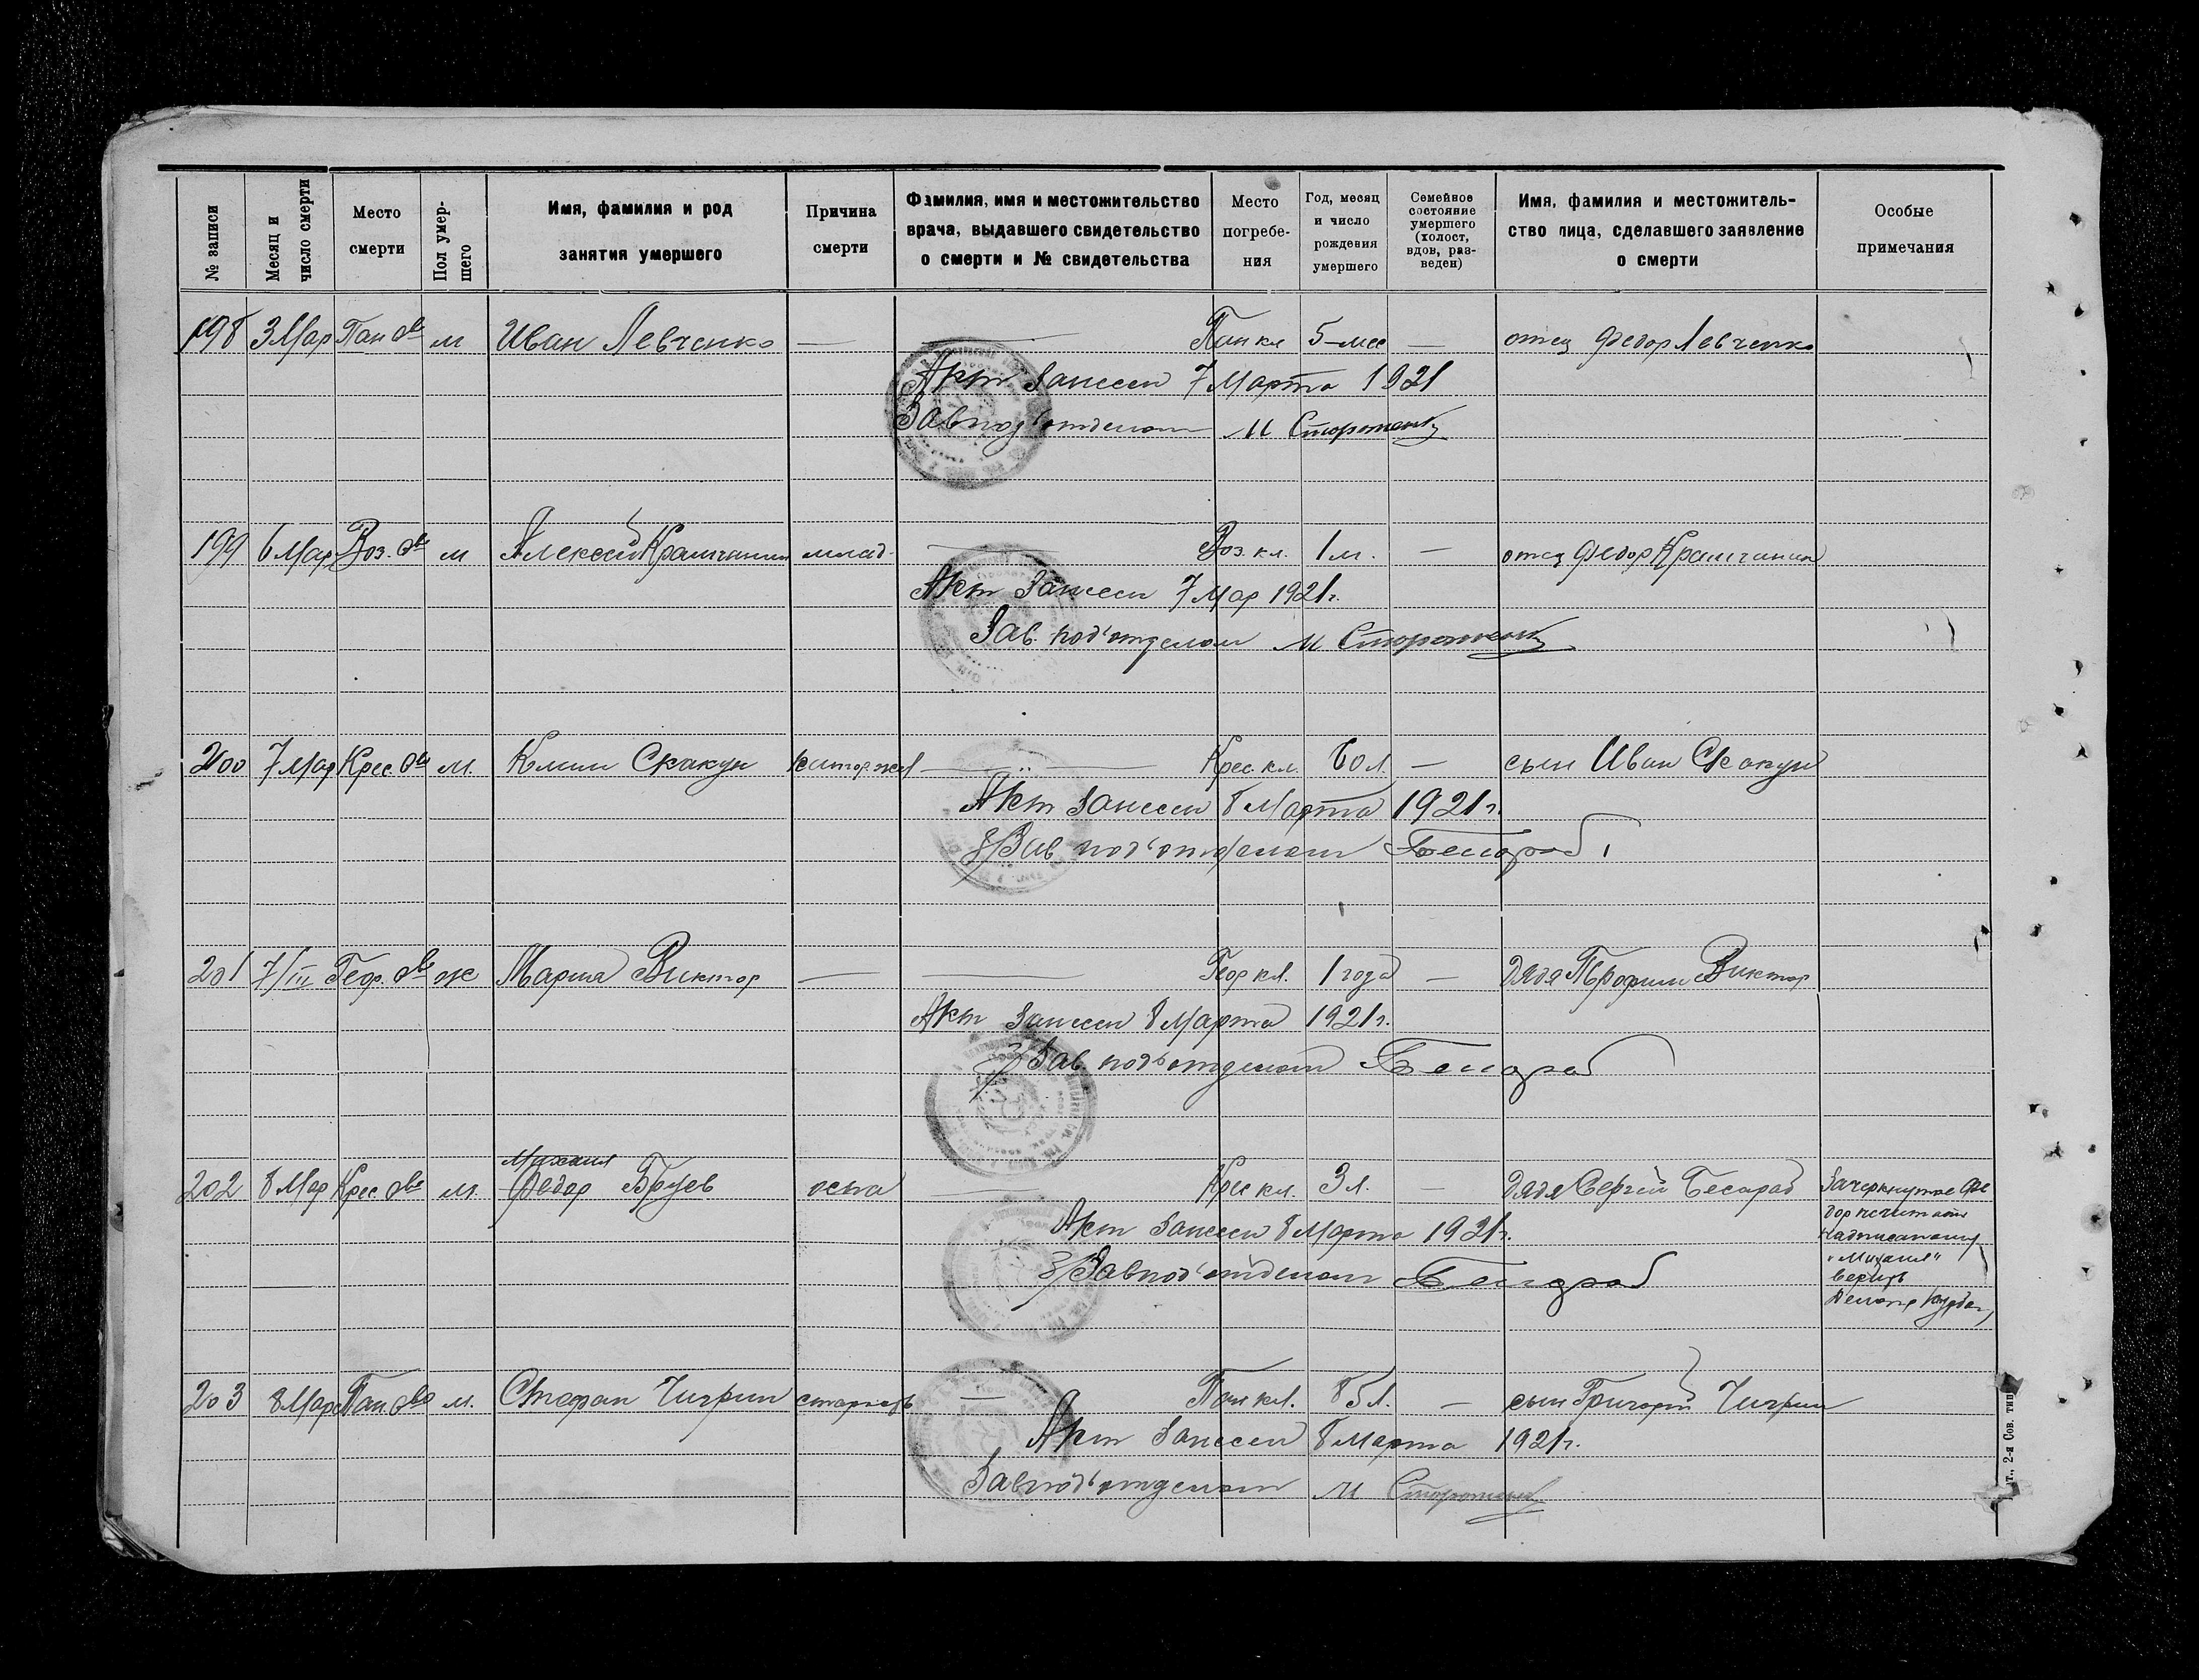 № записи
Месяц и число смерти
Место смерти
Пол умершего
Имя, фамилия и род занятия умершего
Причина смерти
Фамилия, имя и местожительство врача, выдавшего свидетельство о смерти и № свидетельства
Место погребения
Год, месяц и число рождения умершего
Семейное состояние умершего (холост, вдов, разведен)
Имя, фамилия и местожительство лица, сделавшего заявление о смерти
Особые примечания
198 3 Мар Пан м Иван Левченко — — Пан кл 5 мес — отец Федор Левченко
Акт Занесен 7 Марта 1921
Зав под'отделом М Стороженко
199 6 Мар Воз. м Алексей Крамчанин млад. — Воз. кл. 1 м. — отец Федор Крамчанин
Акт Занесен 7 Мар 1921 г.
Зав. под'отделом М Стороженко
200 7 Мар Крес. м. Клим Скакун — Крес. кл. 60 л. — сын Иван Скакун
Акт Занесен 8 Марта 1921 г.
З/Зав под'отделом
201 7/III Геор. ж Мария Виктор — — Геор кл. 1 года — дядя Трофим Виктор
Акт Занесен 8 Марта 1921 г.
З/Зав. под'отделом
Михаил
202 8 Мар Крес. м. Федор оспа — Крес кл. 3 л. — дядя Сергей Бесараб Зачеркнутое Фе
дор
надписанному
"Михаил"
верить
203 8 Мар Пан м. Стефан Чигрин старость — Пан кл. 85 л. — сын Григорий Чигрин
Акт Занесен 8 Марта 1921 г.
З/Зав под'отделом
Акт Занесен 8 Марта 1921 г.
Зав под'отделом М Стороженко
т., 2-я Сов. тип.